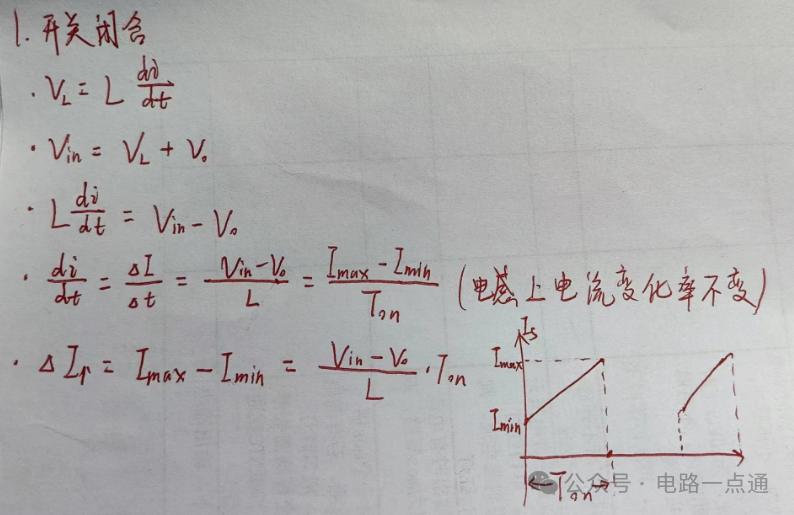 1. 开关闭合
· V_L = L di/dt
· Vin = V_L + V₀
· L di/dt = Vin - V₀
· di/dt = ΔI/Δt = (Vin-V₀)/L = (Imax-Imin)/Ton (电感上电流变化率不变)
· ΔI₁ = Imax - Imin = (Vin-V₀)/L · Ton
Is
Imax
Imin
Ton
公众号 · 电路一点通